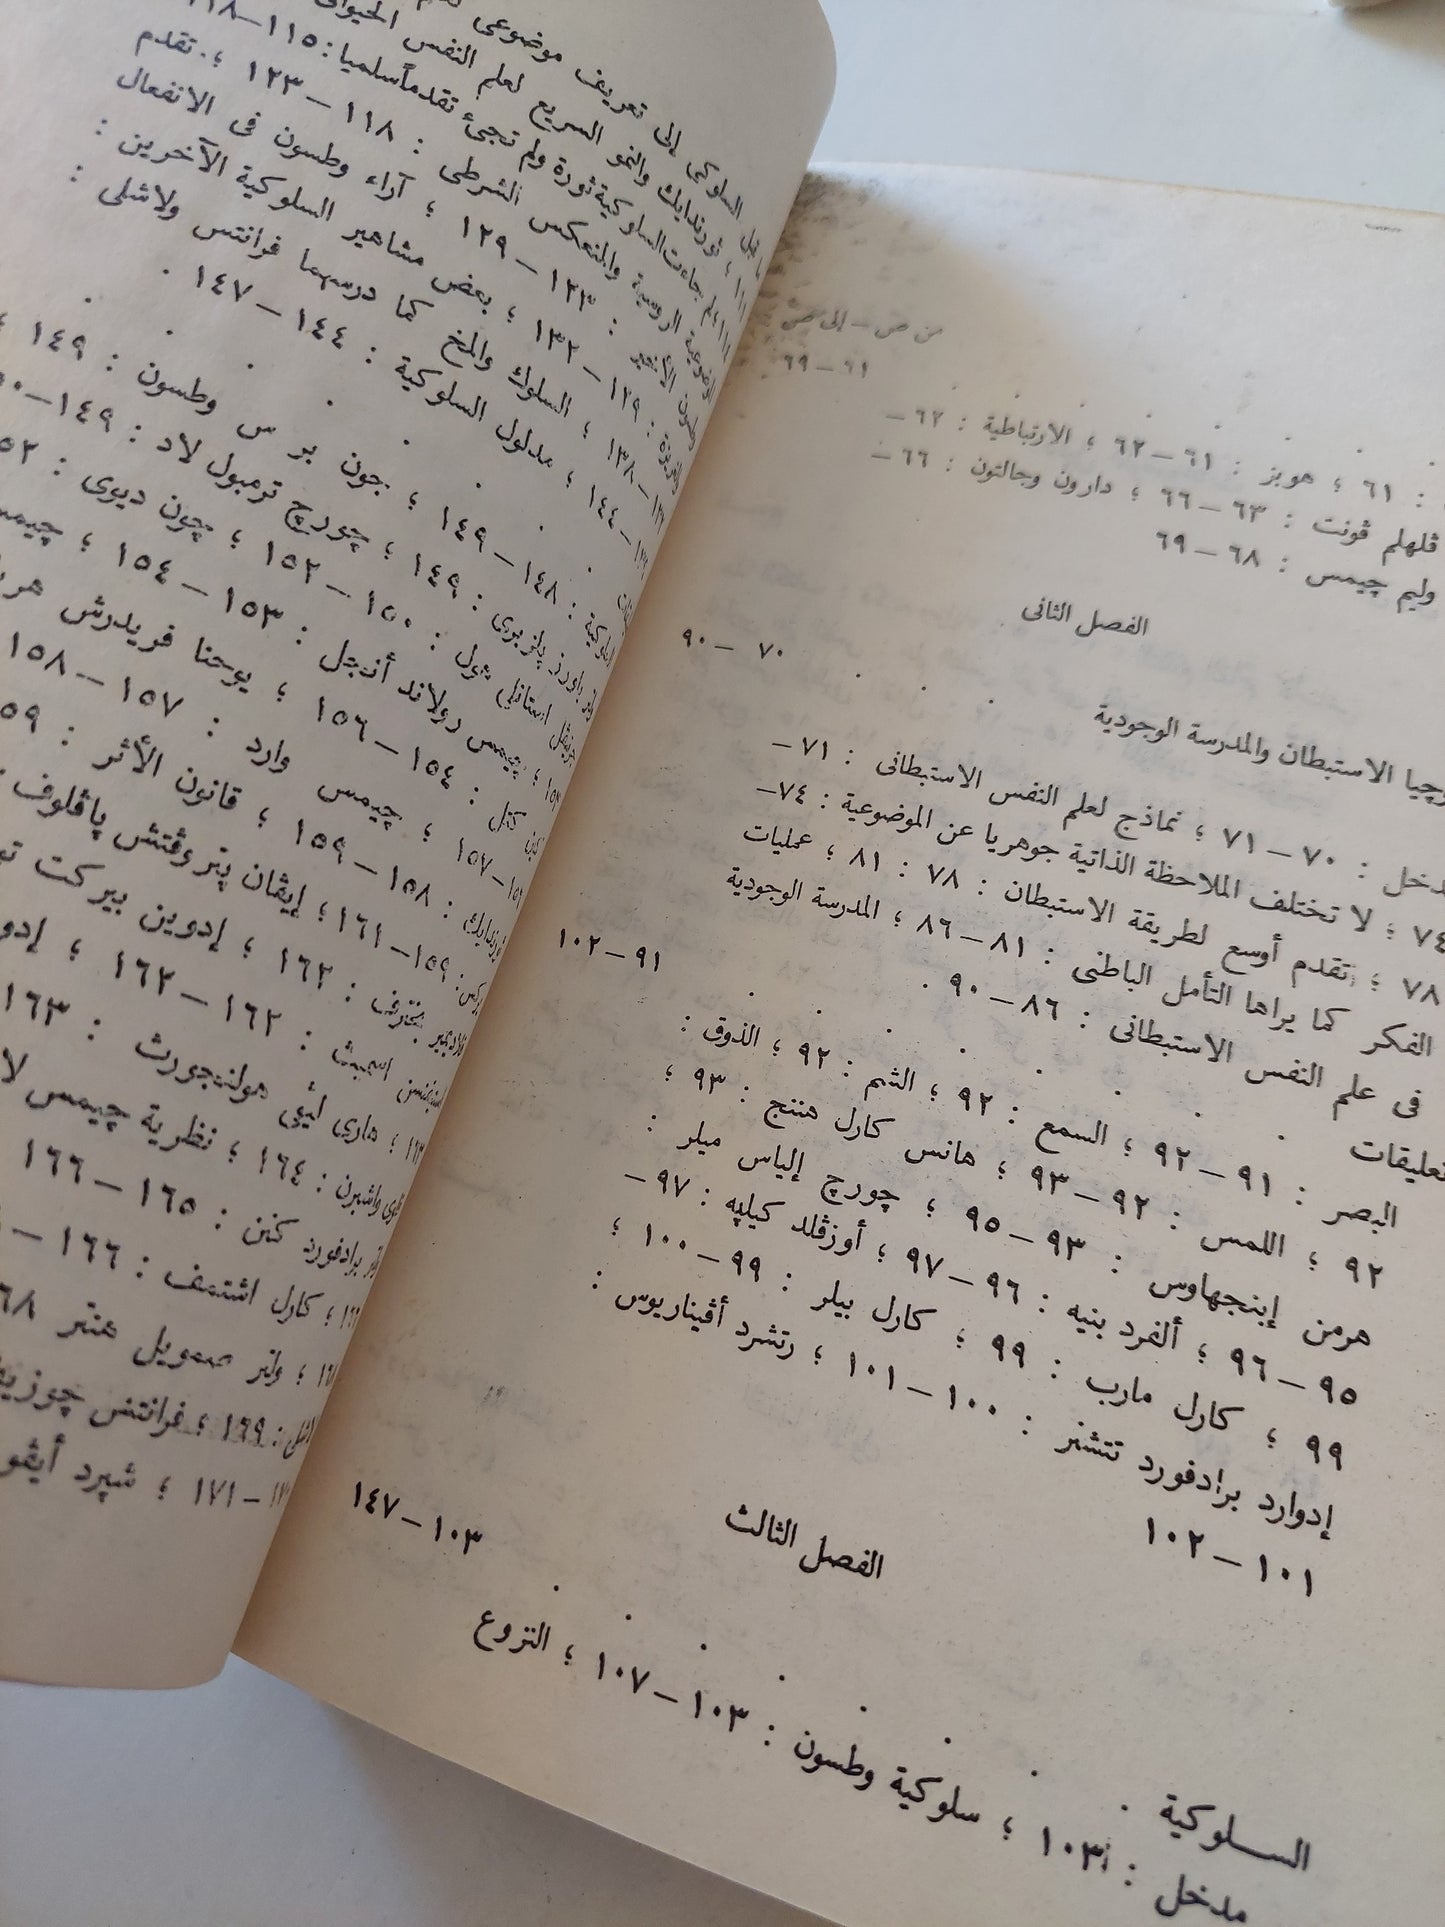 من ص – إلى ص
٦١ – ٦٩
: ٦١ ؛ هوبز : ٦١ – ٦٢ ؛ الارتباطية : ٦٢ –
ڤلهلم ڤونت : ٦٣ – ٦٦ ؛ دارون وجالتون : ٦٦ –
وليم چيمس : ٦٨ – ٦٩
الفصل الثانى
٧٠ – ٩٠
الاستبطان والمدرسة الوجودية
: ٧٠ – ٧١ ؛ نماذج لعلم النفس الاستبطانى : ٧١ –
٧٤ ؛ لا تختلف الملاحظة الذاتية جوهريا عن الموضوعية : ٧٤ –
٧٨ ؛ تقدم أوسع لطريقة الاستبطان : ٧٨ : ٨١ ؛ عمليات
الفكر كما يراها التأمل الباطنى : ٨١ – ٨٦ ؛ المدرسة الوجودية
فى علم النفس الاستبطانى : ٨٦ – ٩٠ .
تعليقات . . . . . . ٩١ – ١٠٢
البصر : ٩١ – ٩٢ ؛ السمع : ٩٢ ؛ الشم : ٩٢ ؛ الذوق :
٩٢ ؛ اللمس : ٩٢ – ٩٣ ؛ هانس كارل هننج : ٩٣ ؛
هرمن إبنجهاوس : ٩٣ – ٩٥ ؛ چورچ إلياس ميلر :
٩٥ – ٩٦ ؛ ألفرد بنيه : ٩٦ – ٩٧ ؛ أوزڤلد كيلپه : ٩٧ –
٩٩ ؛ كارل مارب : ٩٩ ؛ كارل بيلر : ٩٩ – ١٠٠ ؛
إدوارد برادفورد تتشنر : ١٠٠ – ١٠١ ؛ رتشرد أڤيناريوس :
١٠١ – ١٠٢
الفصل الثالث
السلوكية . . . . . . . . ١٠٣ – ١٤٧
مدخل : ١٠٣ ؛ سلوكية وطسون : ١٠٣ – ١٠٧ ؛ النزوع
إلى تعريف موضوعى
السلوكى ؛ ثورندايك والنمو السريع لعلم النفس الحيوانى
جاءت السلوكية ثورة ولم تجئ تقدماً سلميا : ١١٥ – ١١٨
الروسية والمنعكس الشرطى : ١١٨ – ١٢٣ ؛ تقدم
: ١٢٣ – ١٢٩ ؛ آراء وطسون فى الانفعال
: ١٢٩ – ١٣٢ ؛ بعض مشاهير السلوكية الآخرين :
– ١٣٨ ؛ السلوك والمخ كما درسهما فرانتس ولاشلى :
– ١٤٤ ؛ مدلول السلوكية : ١٤٤ – ١٤٧ .
: ١٤٨ – ١٤٩ ؛ جون بر س وطسون : ١٤٩
پلزبرى : ١٤٩ ؛ چورچ ترمبول لاد : ١٤٩ –
استانلى هول : ١٥٠ – ١٥٢ ؛ چون ديوى :
چيمس رولاند أنجل : ١٥٣ – ١٥٤ ؛
كتل : ١٥٤ – ١٥٦ ؛ يوحنا فريدرش
– ١٥٧ ؛ چيمس وارد : ١٥٧ – ١٥٨
: ١٥٨ – ١٥٩ ؛ قانون الأثر :
: ١٥٩ – ١٦١ ؛ إيڤان پتروڤتش پاڤلوف
بخترف : ١٦٢ ؛ إدوين بيركت
اسميث : ١٦٢ – ١٦٢ ؛
هارى ليڤى هولنجورث : ١٦٣
واشبرن : ١٦٤ ؛ نظرية چيمس
برادفورد كنن : ١٦٥ – ١٦٦
؛ كارل اشتمف : ١٦٦ –
؛ ولتر صمويل هنتر
: ١٦٩ ؛ فرانتس
– ١٧١ ؛ شپرد